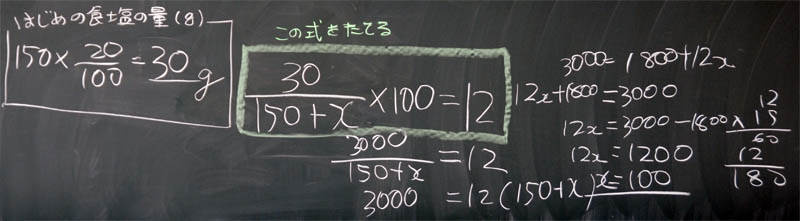 はじめの食塩の量(g)
150×20/100=30g
この式をたてる
30/150+x×100=12
3000/150+x=12
3000=12(150+x)
3000=1800+12x
12x+1800=3000
12x=3000-1800
12x=1200
x=100
12
×15
60
12
180